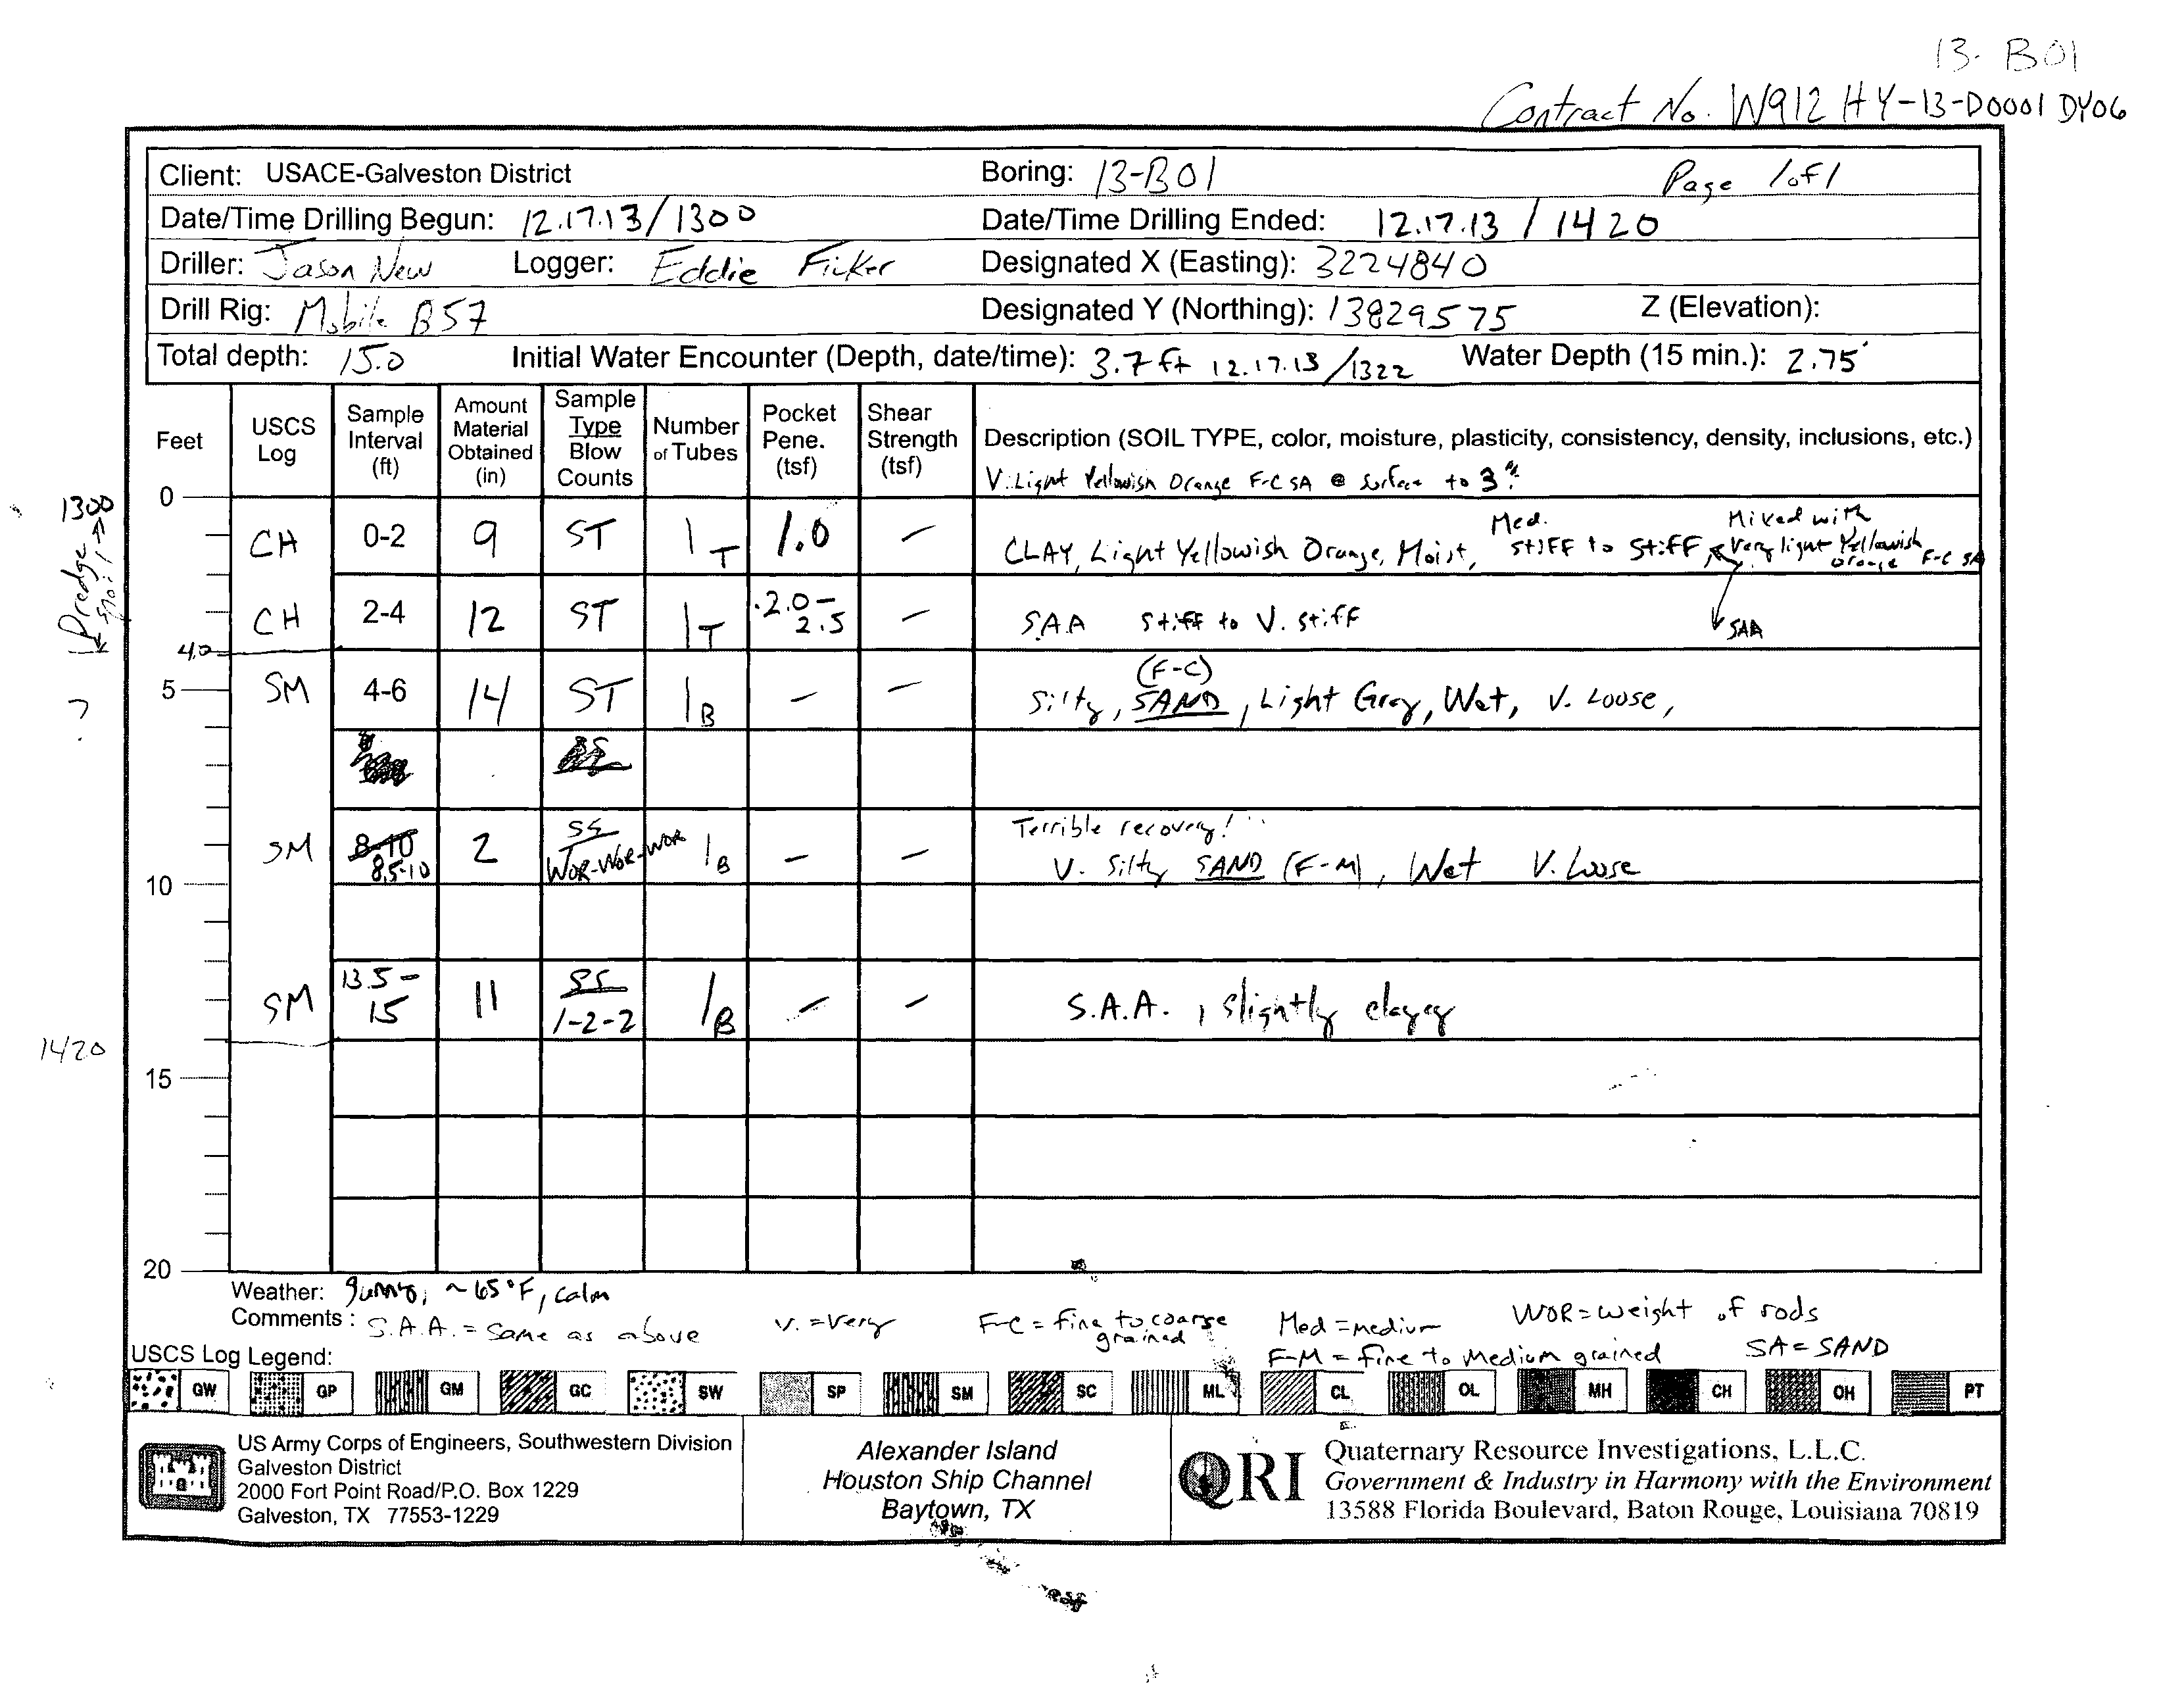 13-B01
Contract No. W912HY-13-D0001 DY06
Client: USACE-Galveston District Boring: 13-B01 Page 1 of 1
Date/Time Drilling Begun: 12.17.13/1300 Date/Time Drilling Ended: 12.17.13 / 1420
Driller: Jason New Logger: Eddie Ficker Designated X (Easting): 3224840
Drill Rig: Mobile B57 Designated Y (Northing): 13829575 Z (Elevation):
Total depth: 15.0 Initial Water Encounter (Depth, date/time): 3.7 ft 12.17.13/1322 Water Depth (15 min.): 2.75'
Feet USCS Log Sample Interval (ft) Amount Material Obtained (in) Sample Type Blow Counts Number of Tubes Pocket Pene. (tsf) Shear Strength (tsf) Description (SOIL TYPE, color, moisture, plasticity, consistency, density, inclusions, etc.)
V. Light Yellowish Orange F-C SA @ surface to 3"
0
1300
Dredge Spoil
CH 0-2 9 ST 1T 1.0 – CLAY, Light Yellowish Orange, Moist, Med. stiff to stiff, Mixed with very light Yellowish Orange F-C SA
CH 2-4 12 ST 1T 2.0-2.5 – S.A.A stiff to V. stiff SAA
4.0
5 SM 4-6 14 ST 1B – – Silty, SAND (F-C), Light Gray, Wet, V. Loose,
?
SM 8-10 8.5-10 2 SS WOR-WOR-WOR 1B – – Terrible recovery!
V. Silty SAND (F-M), Wet V. Loose
10
SM 13.5-15 11 SS 1-2-2 1B – – S.A.A., slightly clayey
1420
15
20
Weather: Sunny, ~65°F, calm
Comments: S.A.A. = same as above V. = Very F-C = fine to coarse grained Med = medium WOR = weight of rods
F-M = fine to Medium grained SA = SAND
USCS Log Legend:
GW GP GM GC SW SP SM SC ML CL OL MH CH OH PT
US Army Corps of Engineers, Southwestern Division
Galveston District
2000 Fort Point Road/P.O. Box 1229
Galveston, TX 77553-1229
Alexander Island
Houston Ship Channel
Baytown, TX
QRI
Quaternary Resource Investigations, L.L.C.
Government & Industry in Harmony with the Environment
13588 Florida Boulevard, Baton Rouge, Louisiana 70819